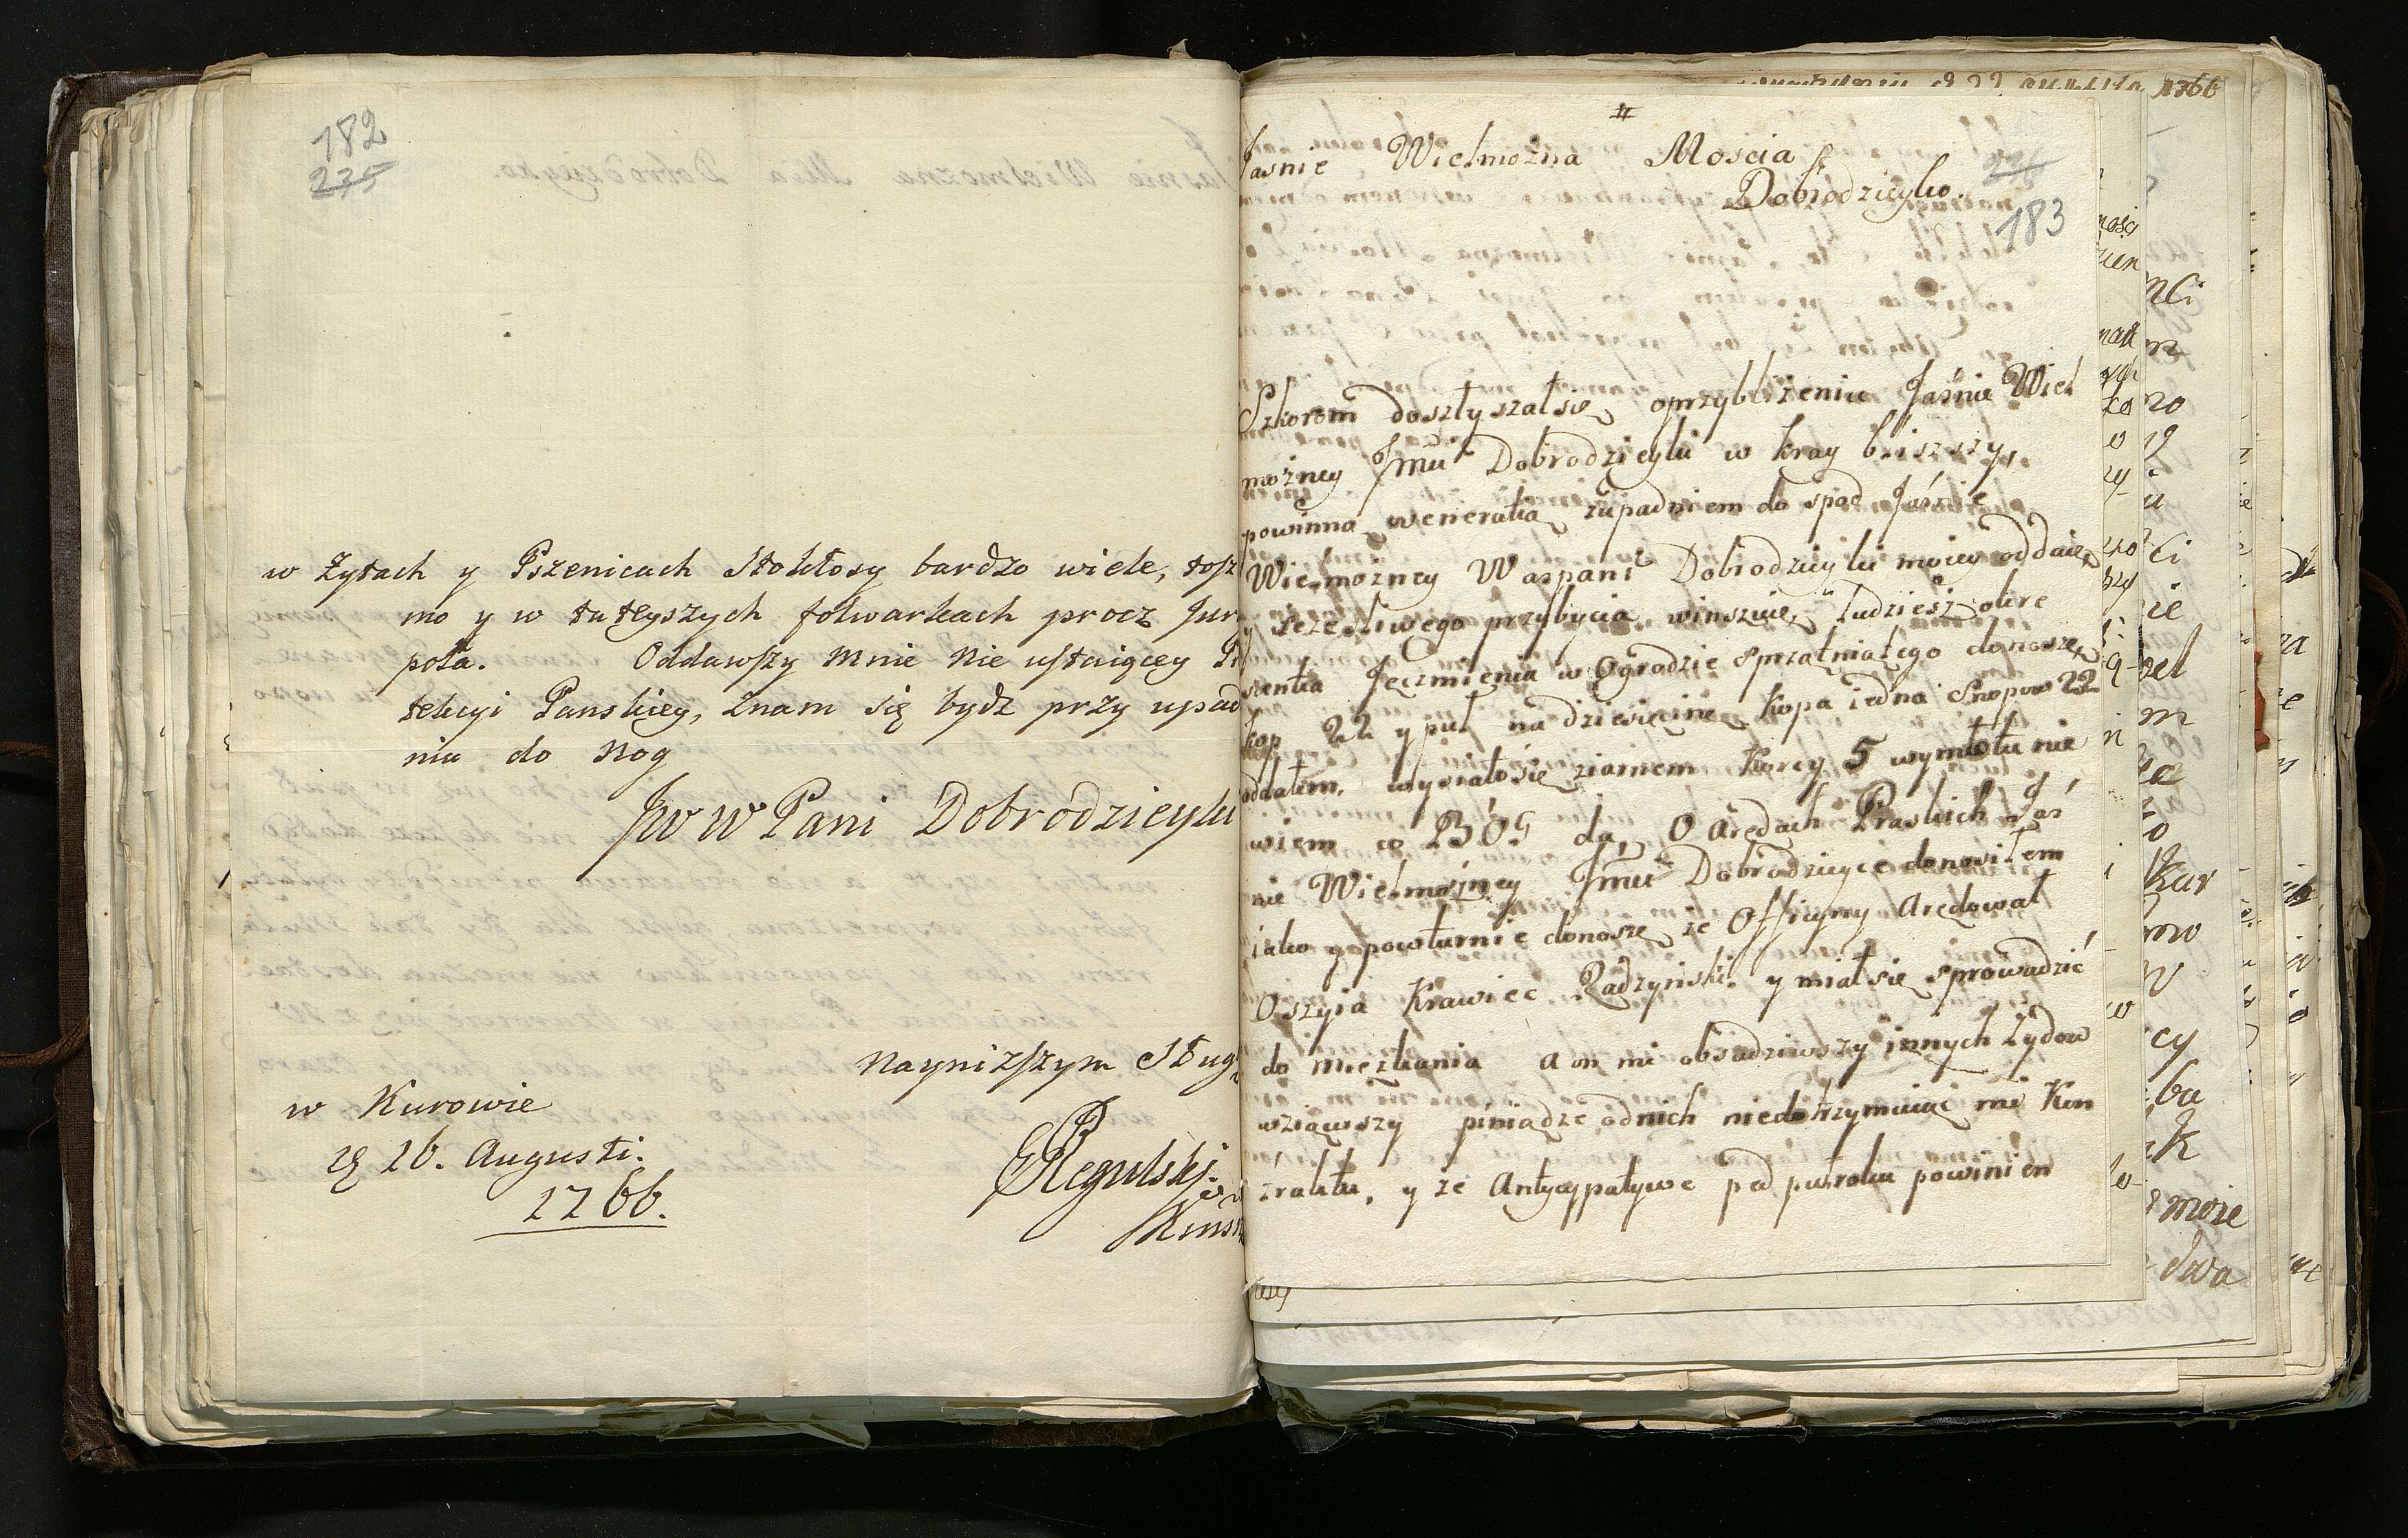 182
235
w Żytach y Pszenicach Stokłosy bardzo wiele, toż
mo y w tuteyszych folwarkach procz Jur
pola. Oddawszy mnie nie ustaiącey Pr
tekcyi Panskiey, znam się bydz przy upad
niu do nog
JW W Pani Dobrodzieyki
Nayniższym Sług
w Kurowie
26. Augusti.
1766.
Regulski
Jasnie Wielmożna Moscia
Dobrodzieyko
183
Szkorom dosłyszał się oprzybliżeniu Jaśnie Wiel
możney Jmu Dobrodzieyki w kray bliszszy,
powinną weneratią zupadniem do spod Jaśnie
Wielmożney Waspani Dobrodzieyki moiey oddaię,
y szczesliwego przybycia winszuię, tudziesz okre
szenta Jęczmienia w Ogrodzie sprzątniątego donoszę,
kop 22 y puł na dziesięcinę kopa iedna Snopow 22
oddałem, wysiało się ziarnem Korcy 5 wymłotu nie
wiem co BÓG da, O Arędach Praskich Jaś
nie Wielmożney Jmu Dobrodzieyce donosiłem
iako y powturnie donoszę ze Officyny Arędował
Oszyia Krawiec Radzyński y miał się sprowadzić
do mieżkania a on mi obsadziwszy innych Zydow
wziąwszy piniądze odnich niedotrzymuiąc mi Kon
traktu, y że Antycypatywe pod puł roku powinien